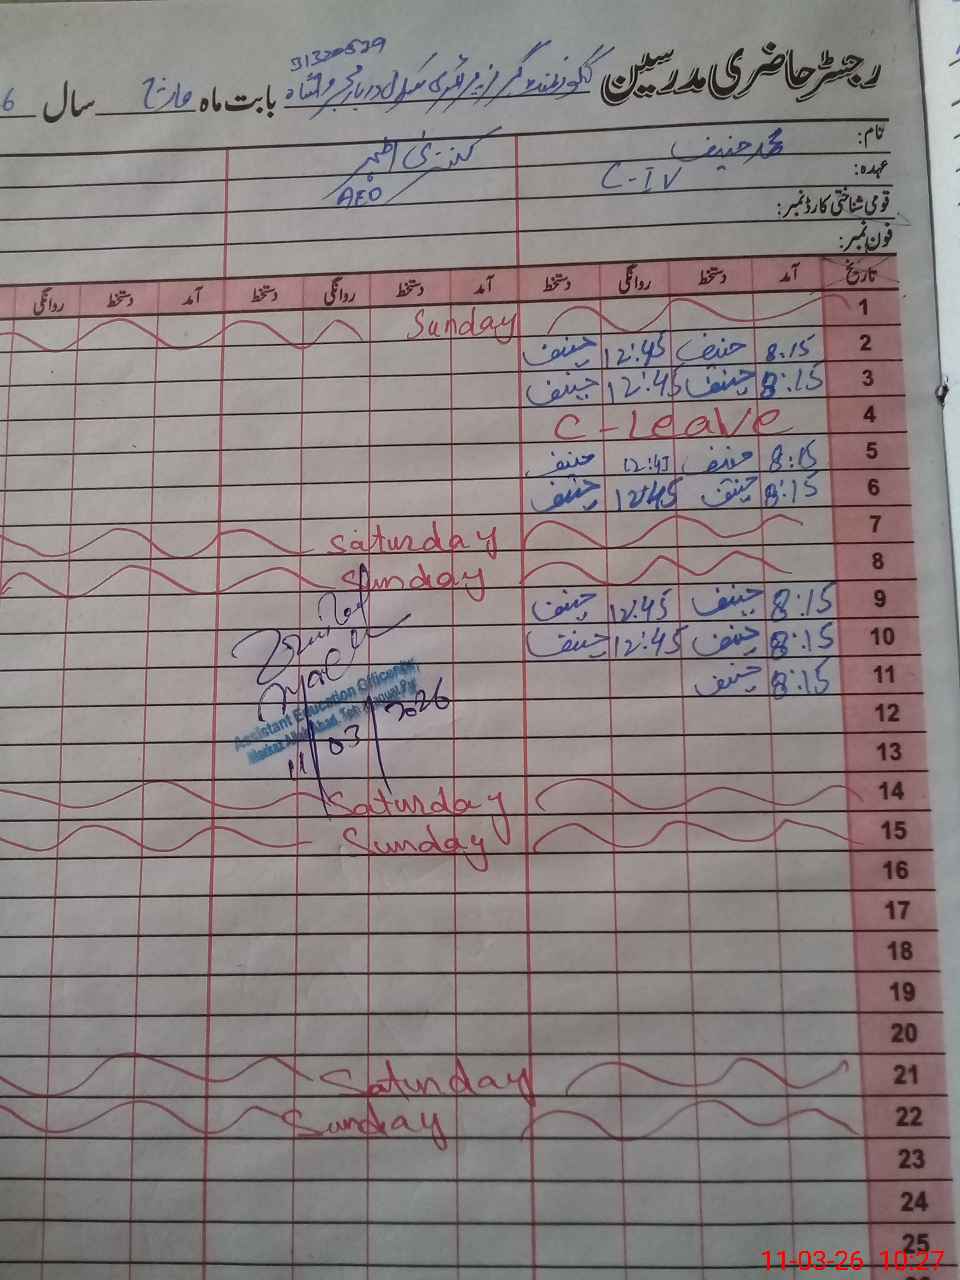 31320529
رجسٹر حاضری مدرسین گورنمنٹ گرلز پرائمری سکول بابت ماہ مارچ سال 6
نام: محمد حنیف
عہدہ: C-IV
AEO
قومی شناختی کارڈ نمبر:
فون نمبر:
تاریخ آمد دستخط روانگی دستخط آمد دستخط روانگی دستخط آمد دستخط روانگی
1 Sunday
2 8.15 حنیف 12:45 حنیف
3 8:15 حنیف 12:45 حنیف
4 C-Leave
5 8:15 حنیف 12:45 حنیف
6 8:15 حنیف 12:45 حنیف
7 Saturday
8 Sunday
9 8:15 حنیف 12:45 حنیف
10 8:15 حنیف 12:45 حنیف
11 8:15 حنیف
Assistant Education Officer
11/03/2026
12
13
14 Saturday
15 Sunday
16
17
18
19
20
21 Saturday
22 Sunday
23
24
25
11-03-26 10:27